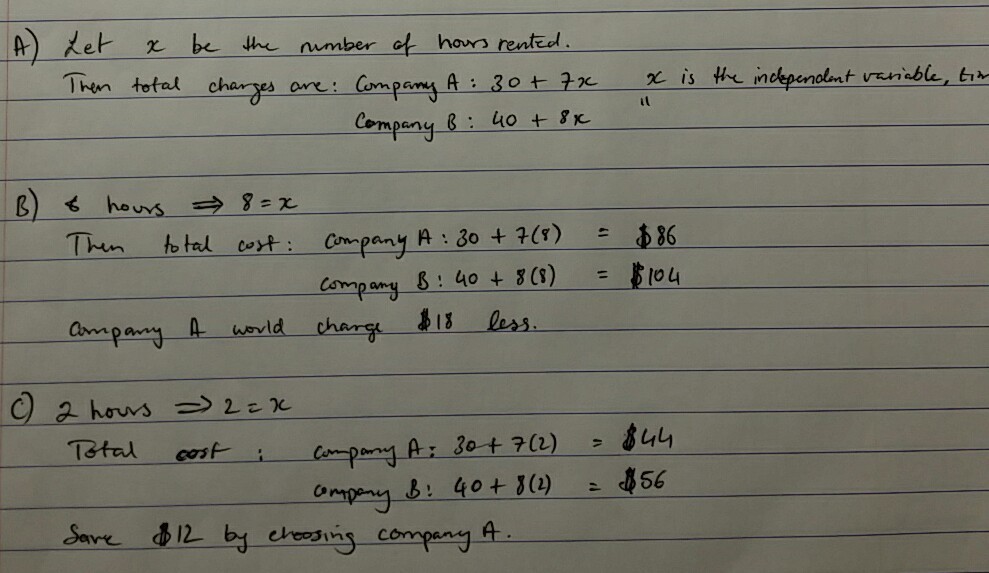 A) Let x be the number of hours rented.
Then total charges are: Company A : 30 + 7x x is the independent variable, tim
Company B : 40 + 8x "
B) 8 hours ⇒ 8 = x
Then total cost : Company A : 30 + 7(8) = $86
Company B : 40 + 8(8) = $104
Company A would charge $18 less.
C) 2 hours ⇒ 2 = x
Total cost : Company A : 30 + 7(2) = $44
Company B : 40 + 8(2) = $56
Save $12 by choosing company A.